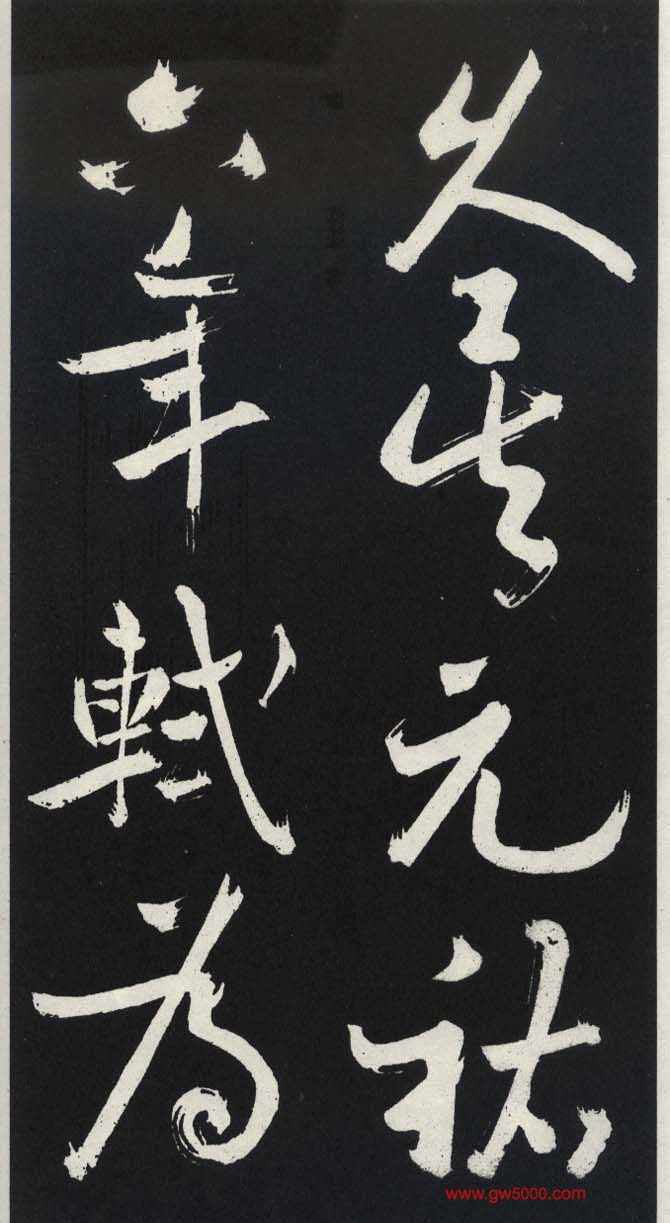 久矣元祐
六年軾為
www.gw5000.com